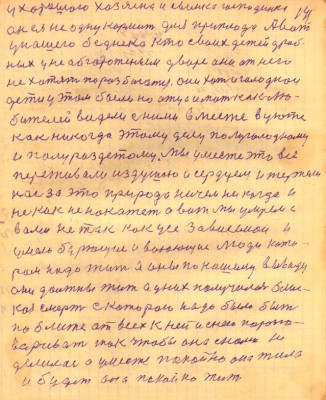 и хорошого хозяина и явился находника 14
он ея не одну кормит для приклода А вот
у нашего бедняка кто своих детей дроб
ных у не абготовленом дворе они от него
не хотят поразбогатет, они хотя голодной
дети у этом были но отпускают как лю-
бителей видели с ними вместе в уюте
как никогда этому делу полуголодному
и полураздетому. Мы уместе это все
переживали из душою и сердцем и терпим
нас за это природа ничем никогда и
не как не покажет а вит мы умрем с
вами не так как все Завистной и
умело бержущие и воюющие люди кото-
рам надо жит а они по нашему выводу
они должны жит а у них получился боль-
кая смерт с которою надо было быт
по ближе от всех к ней и с нею погово-
варивать так чтобы она с нами не
делилас а уместе покойно она жила
и будет она покойно жит